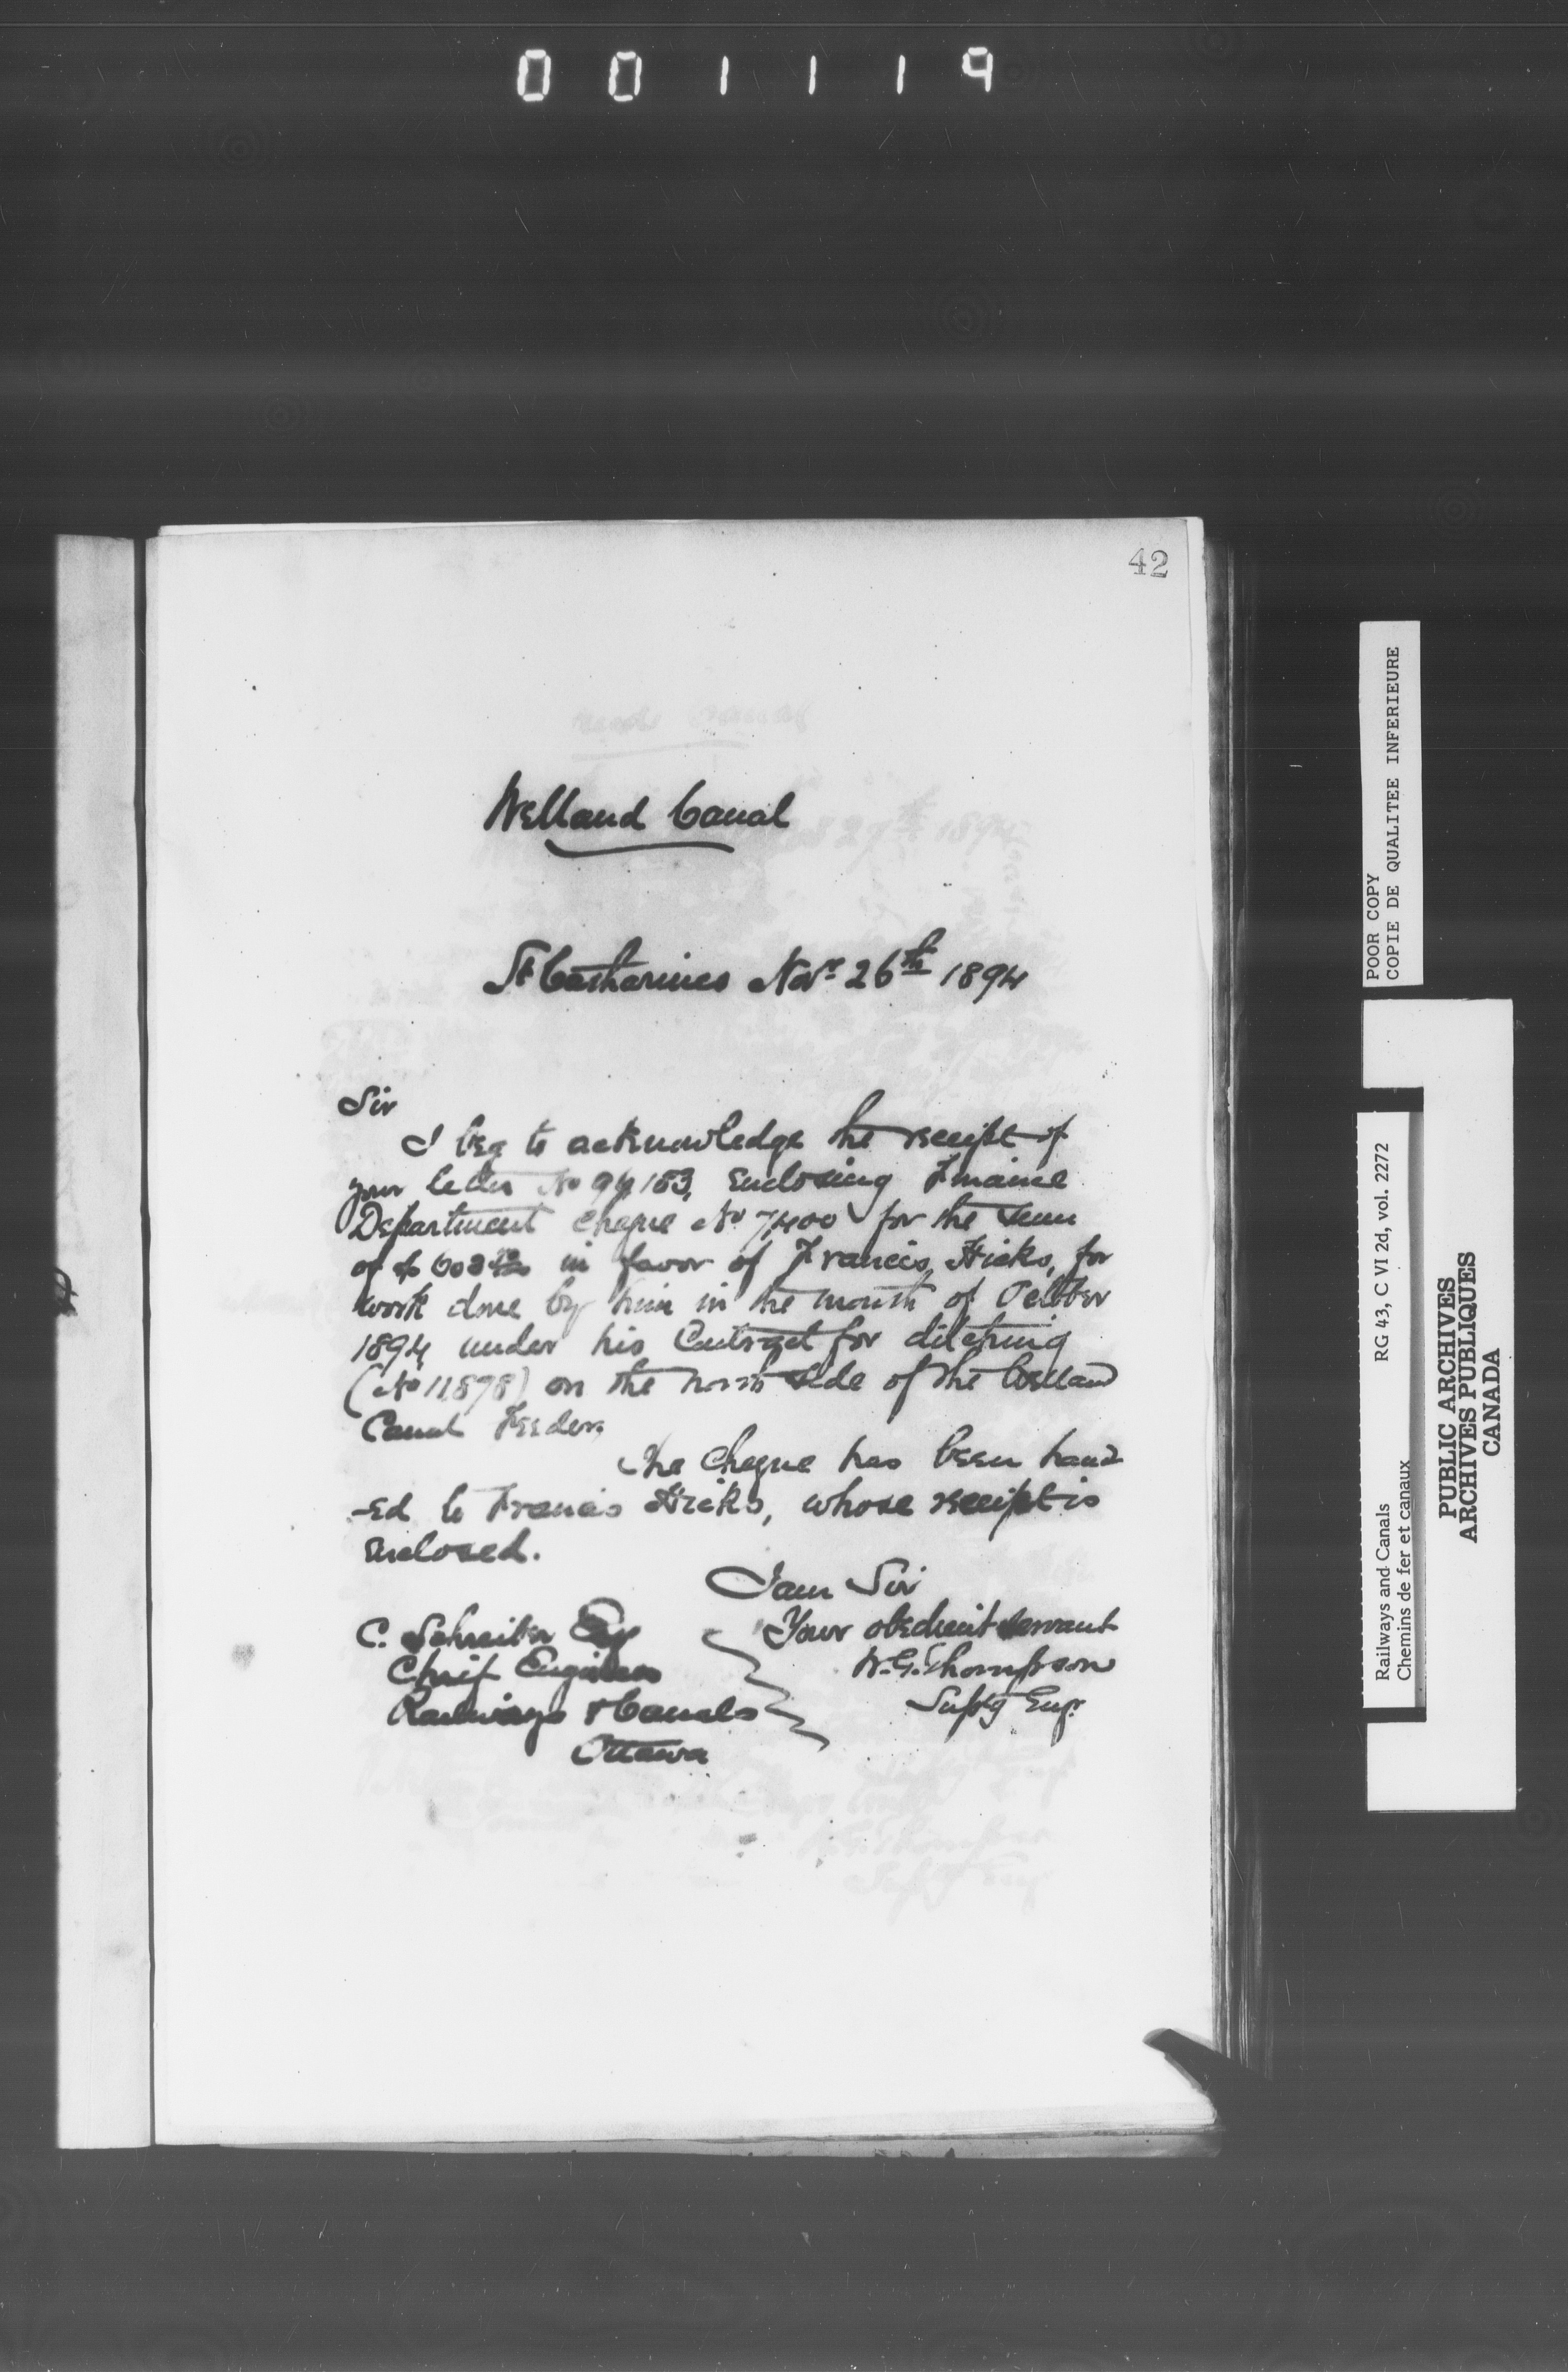 001119
42
Welland Canal
St Catharines Novr 26th 1894
Sir
I beg to acknowledge the receipt of
your letter No 94183, Enclosing Finance
Department cheque No 7400 for the sum
of $ in favor of Francis Hicks, for
work done by him in the month of October
1894 under his Contract for ditching
(No 11,878) on the north side of the Welland
Canal Feeder.
The Cheque has been hand
-ed to Francis Hicks, whose receipt is
Enclosed.
I am Sir
Your obedient servant
W.G. Thompson
Suptg Engr.
C. Schreiber Esq
Chief Engineer
Railways & Canals
Ottawa
POOR COPY
COPIE DE QUALITEE INFERIEURE
Railways and Canals RG 43, C VI 2d, vol. 2272
Chemins de fer et canaux
PUBLIC ARCHIVES
ARCHIVES PUBLIQUES
CANADA